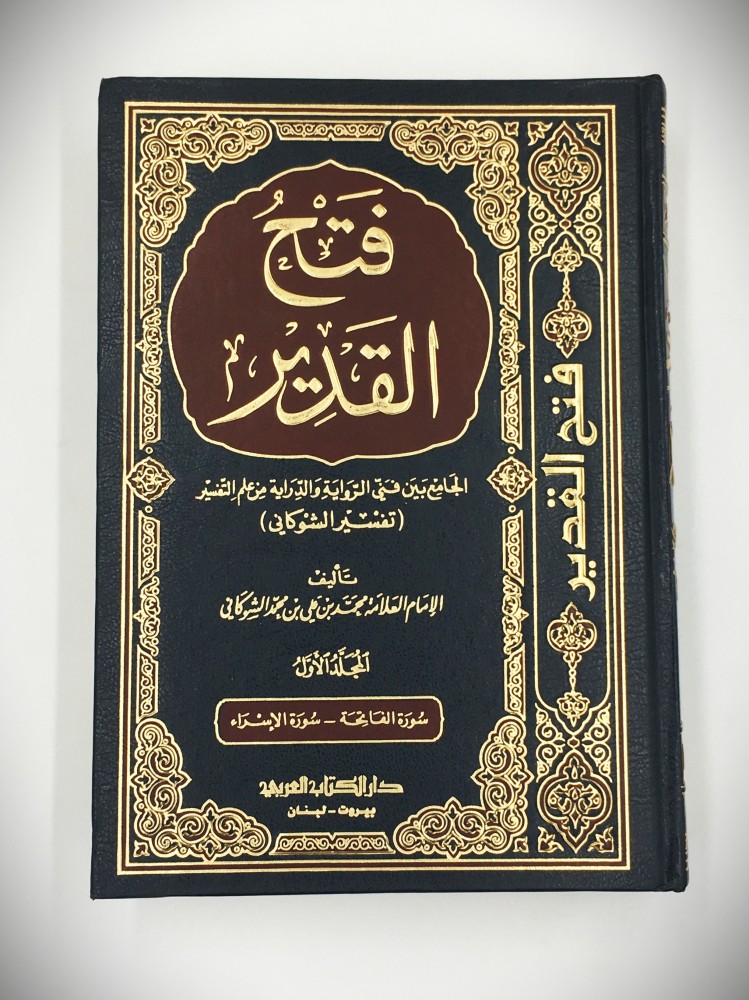 فَتْحُ
القَدِيرِ
الجامع بين فني الرواية والدراية من علم التفسير
(تفسير الشوكاني)
تأليف
الإمام العلامة محمد بن علي بن محمد الشوكاني
المُجَلَّدُ الأوَّلُ
سورة الفاتحة - سورة الإسراء
دار الكتاب العربي
بيروت - لبنان
فتح القدير